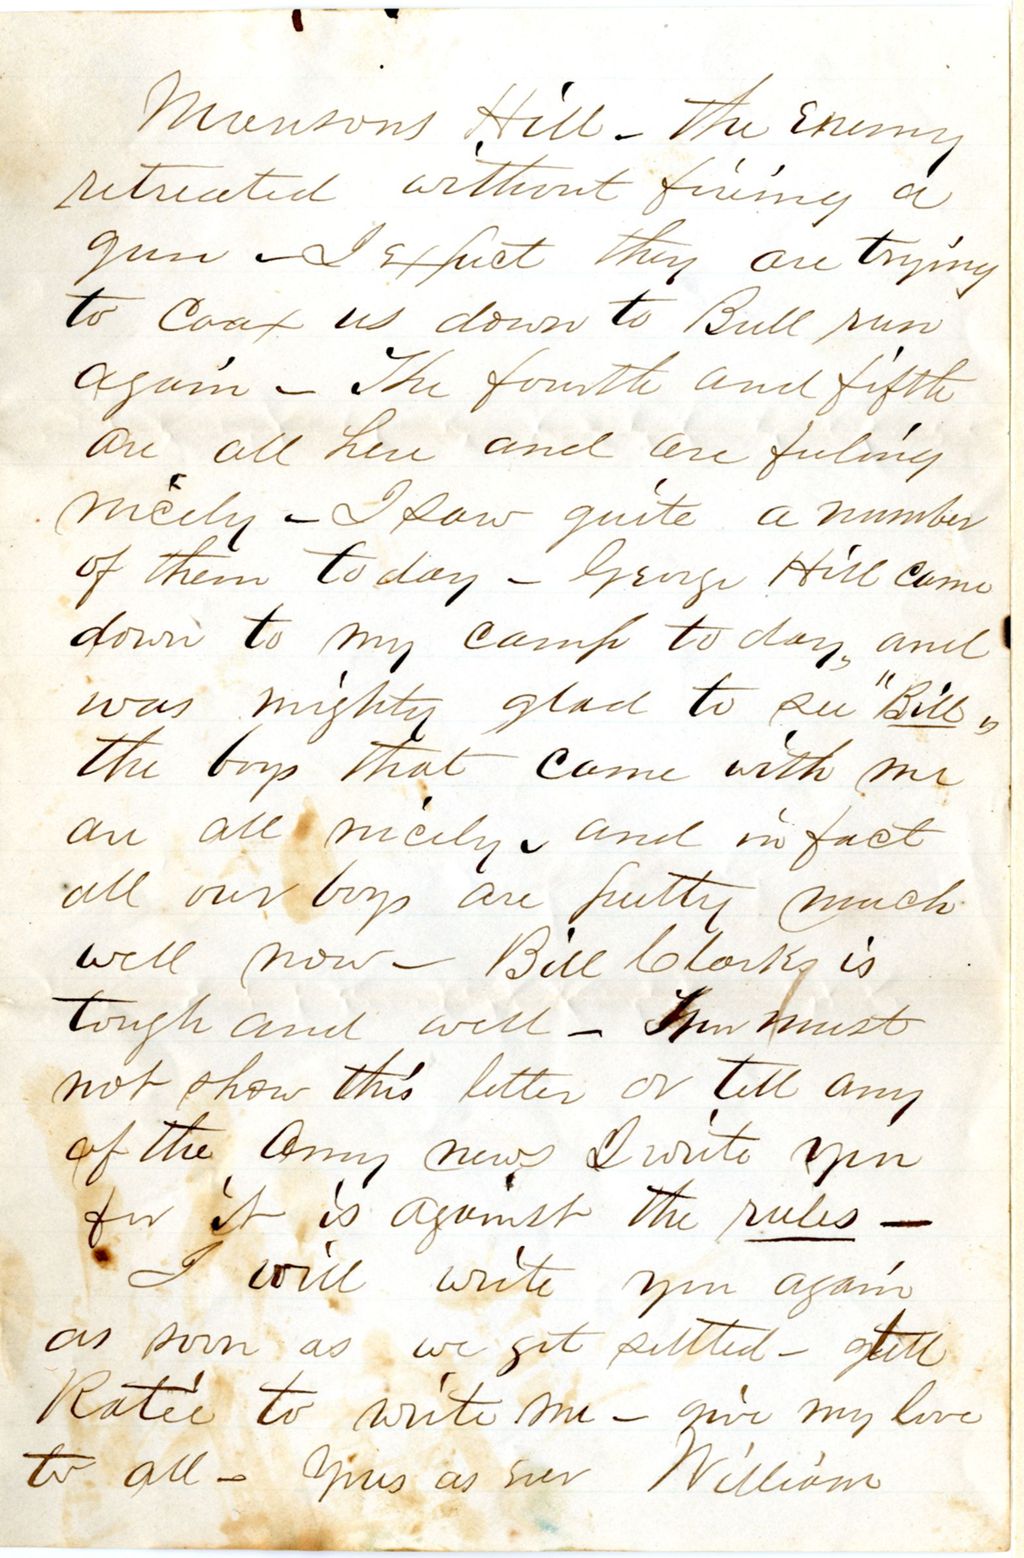 Munsons Hill - the Enemy
retreated without firing a
gun - I expect they are trying
to Coax us down to Bull run
again - The fourth and fifth
are all here and are feeling
nicely - I saw quite a number
of them today - George Hill came
down to my camp to day, and
was mighty glad to see "Bill"
the boys that came with me
are all nicely, and in fact
all our boys are pretty much
well now - Bill Clarks is
tough and well - You must
not show this letter or tell any
of the Army news I write you
for it is against the rules -
I will write you again
as soon as we get settled - tell
Katie to write me - give my love
to all - Yours as ever William